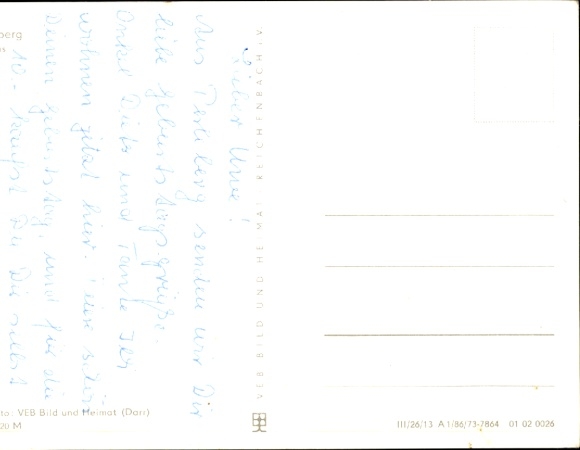 Lieber Uwe!
Aus Perleberg senden wir Dir
liebe Geburtstagsgrüße.
Onkel Dieter und Tante
wohnen jetzt hier.
Deinen Geburtstag, und für die
10,- kaufst Du Dir selbst
berg
VEB BILD UND HEIMAT REICHENBACH i.V.
to: VEB Bild und Heimat (Darr)
20 M
III/26/13 A 1/86/73-7864 01 02 0026